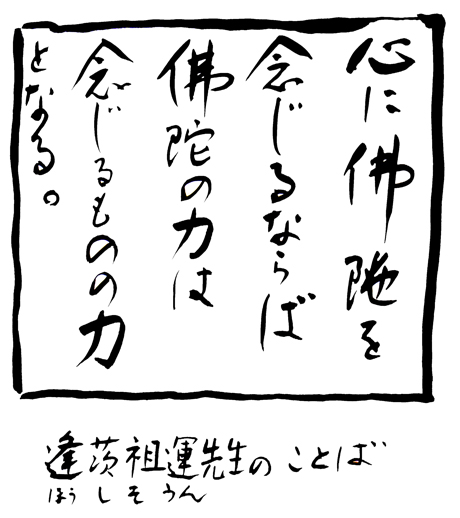 心に佛陀を
念じるならば
佛陀の力は
念じるものの力
となる。
逢茨祖運先生のことば
ほうしそうん